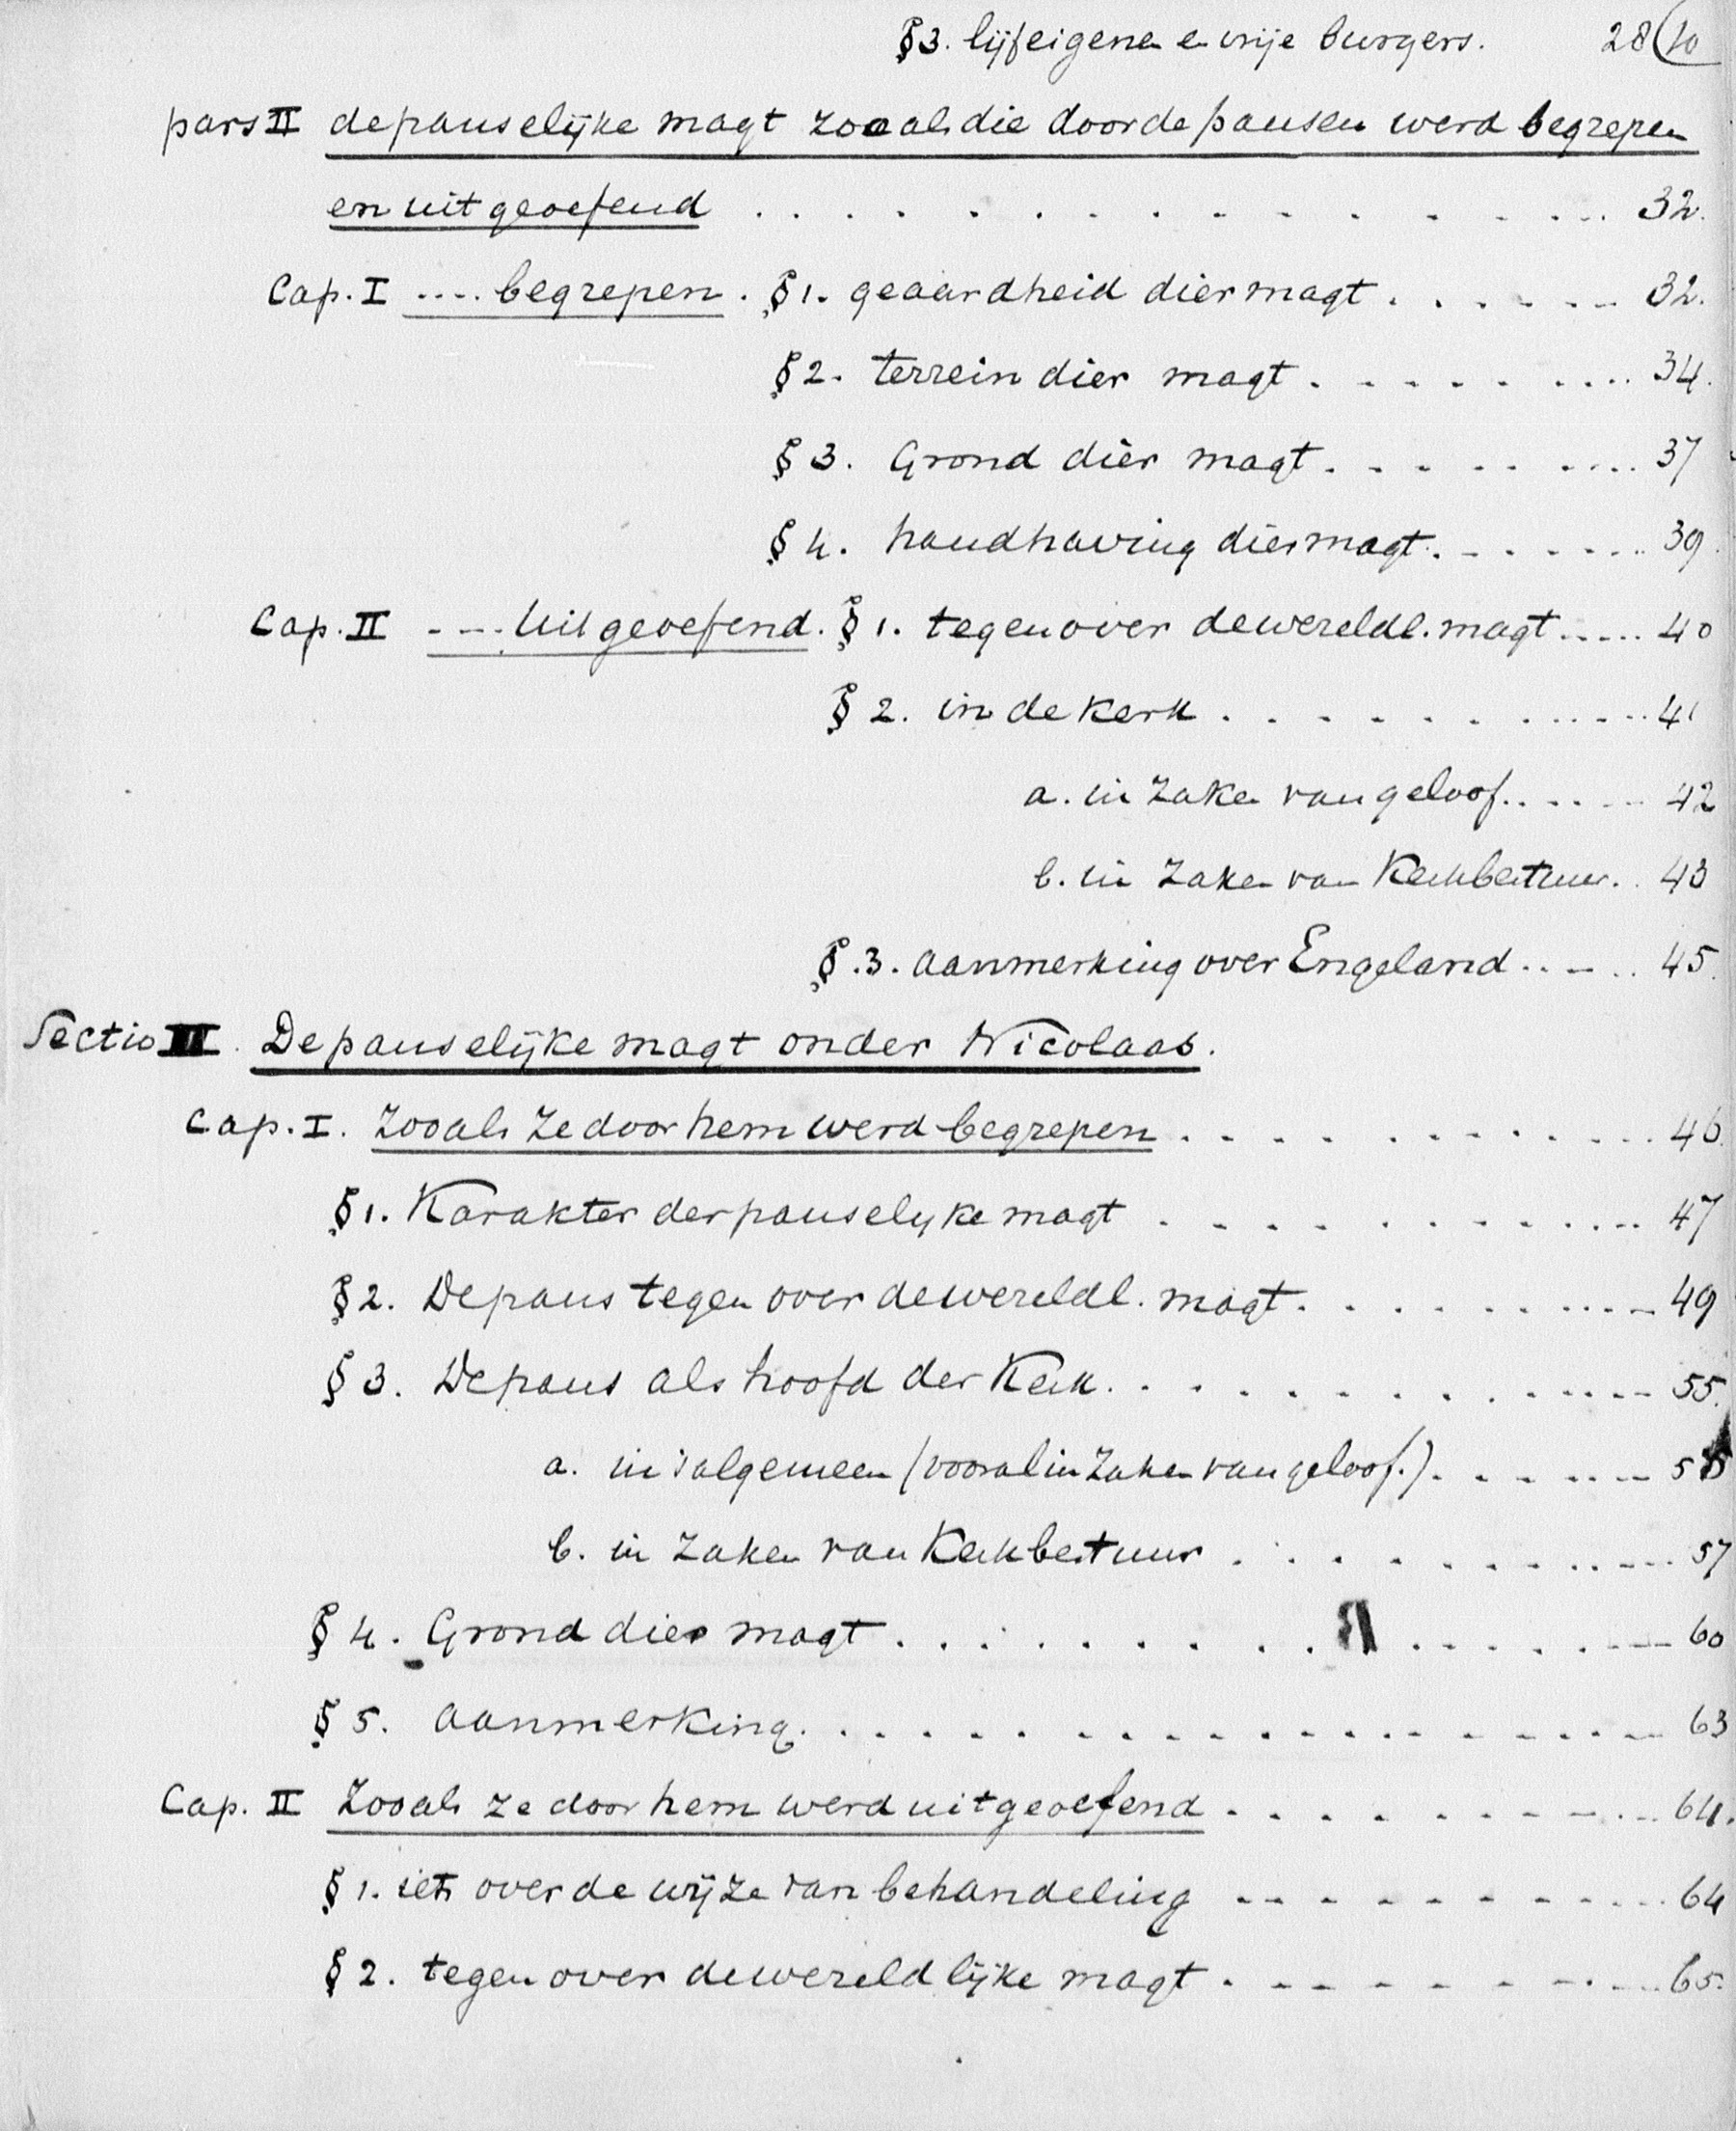 §3. lijfeigenen en vrije burgers. 28 (10
pars II de pauselijke magt zooals die door de pausen werd begrepen
en uitgeoefend . . . . . . . . . . . . . . . 32.
Cap. I .... begrepen. §1. geaardheid dier magt . . . . . . 32.
§2. terrein dier magt . . . . . . . . . 34.
§3. Grond dier magt . . . . . . . . . 37
§4. handhaving dier magt . . . . . . . 39.
Cap. II .... Uitgeoefend. §1. tegenover de wereldl. magt ..... 40
§2. in de kerk . . . . . . . . . . . 41
a. in zaken van geloof . . . . . . 42
b. in zaken van Kerkbestuur. . 43
§.3. aanmerking over Engeland . . . . . 45.
Sectio III. De pauselijke magt onder Nicolaas.
Cap. I. Zooals ze door hem werd begrepen . . . . . . . . . . . . 46.
§1. Karakter der pauselyke magt . . . . . . . . . . . . 47
§2. De paus tegenover de wereldl. magt . . . . . . . . . . 49
§3. De paus als hoofd der Kerk . . . . . . . . . . . . . 55.
a. in 't algemeen (vooral in zaken van geloof.) . . . . . . . 55
b. in zaken van Kerkbestuur . . . . . . . . . . . . 57
§4. Grond dier magt . . . . . . . . . . . . . . . . 60
§5. aanmerking . . . . . . . . . . . . . . . . . . . 63
Cap. II Zooals ze door hem werd uitgeoefend . . . . . . . . . . . 64.
§1. iets over de wijze van behandeling . . . . . . . . . . . 64
§2. tegenover de wereldlijke magt . . . . . . . . . . . 65.